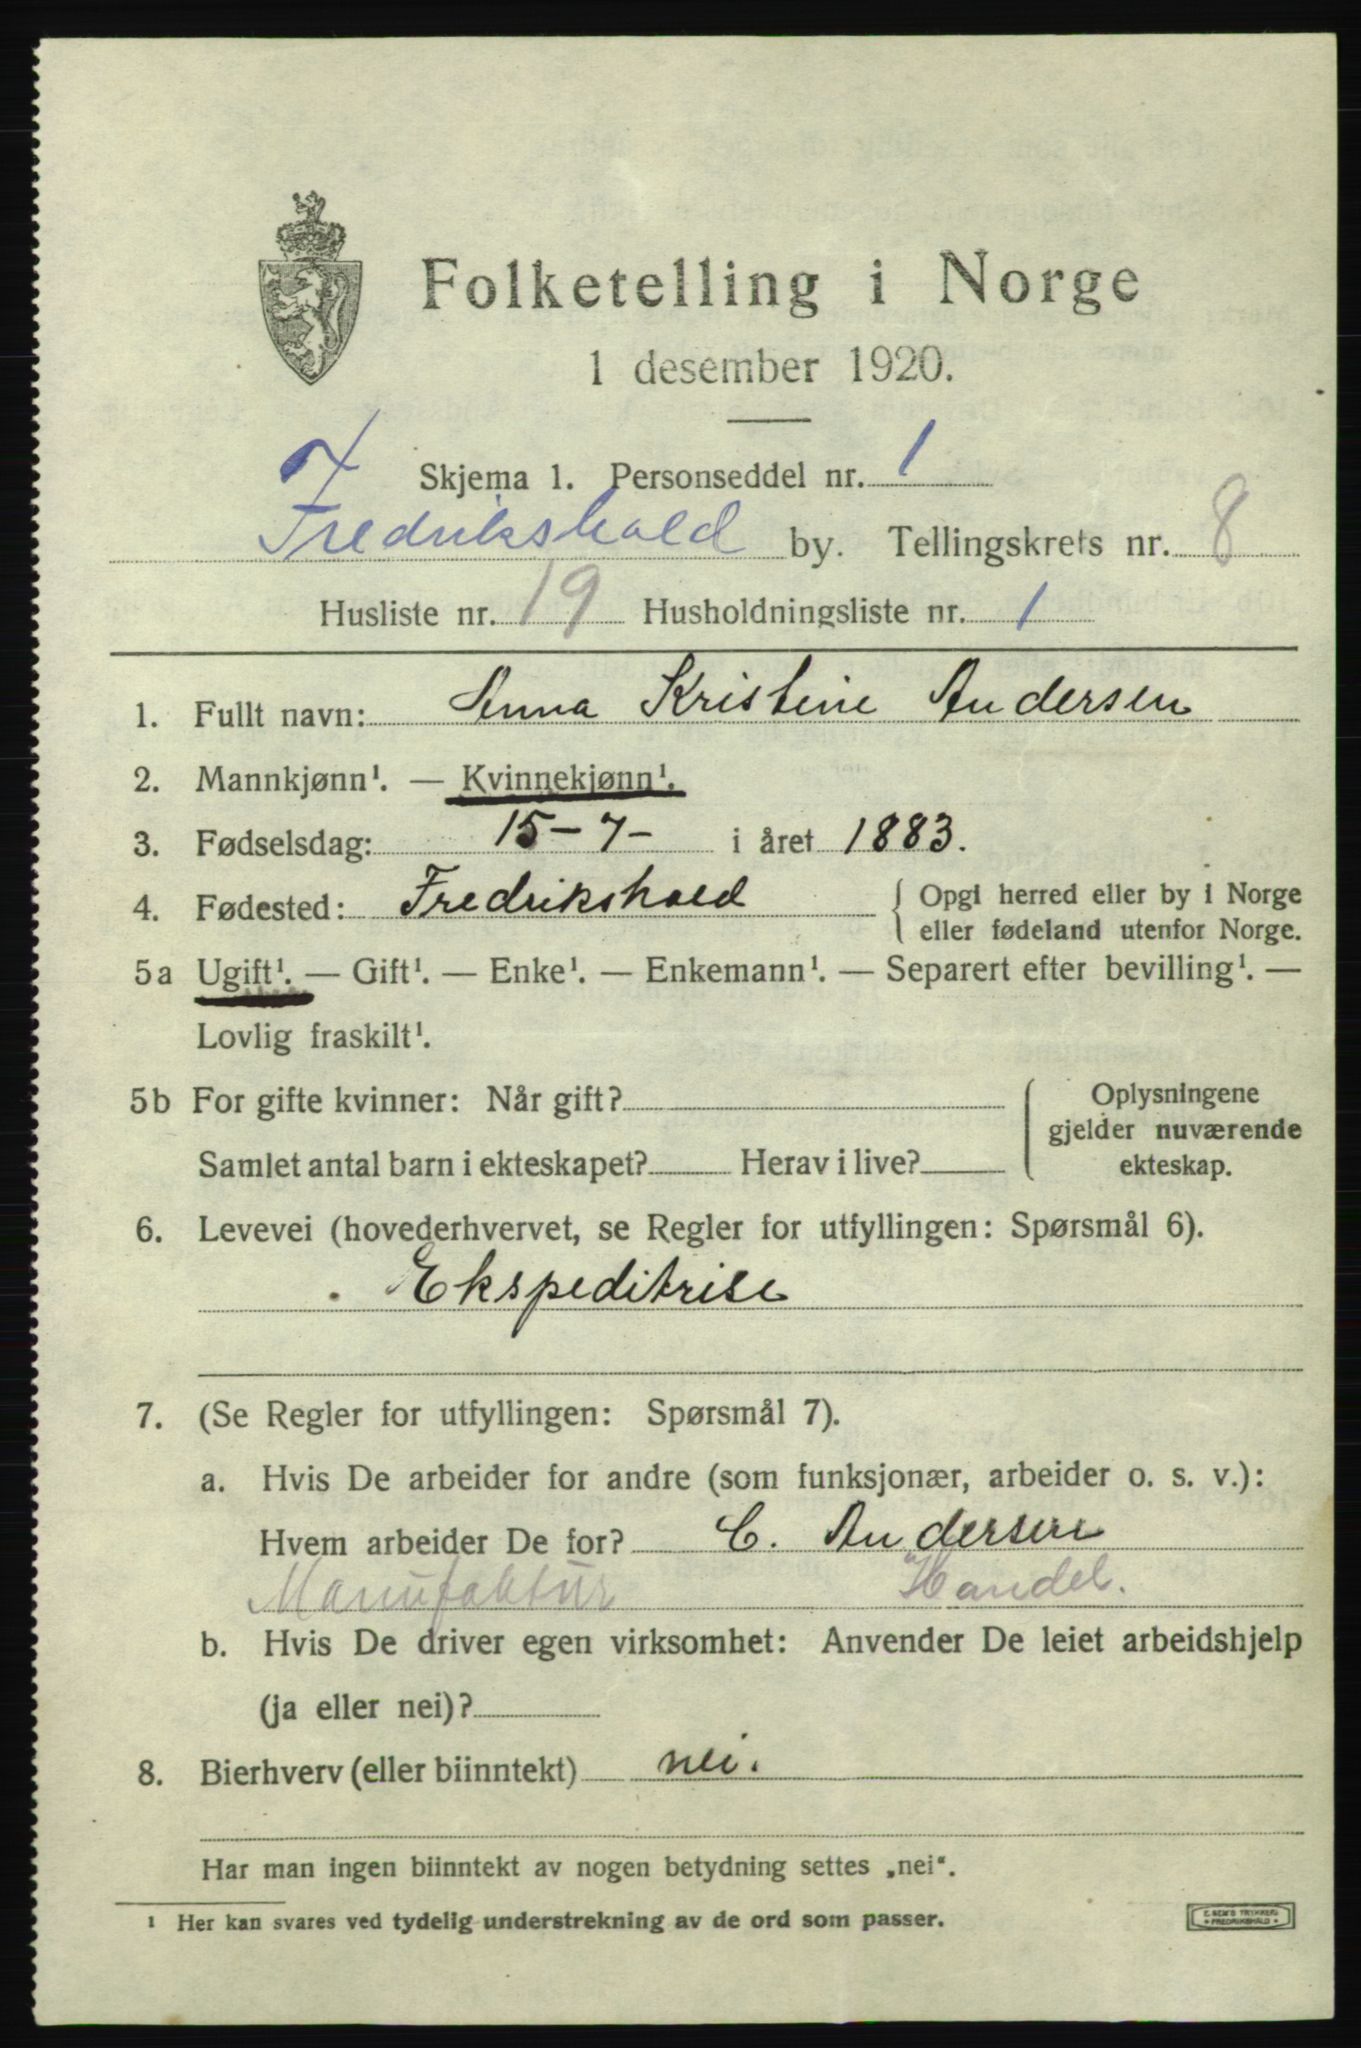 Folketelling i Norge
1 desember 1920.
Skjema 1. Personseddel nr. 1
Fredrikshald by. Tellingskrets nr. 8
Husliste nr. 19 Husholdningsliste nr. 1
1. Fullt navn: Anna Kristine Andersen
2. Mannkjønn¹. — Kvinnekjønn¹.
3. Fødselsdag: 15-7- i året 1883.
4. Fødested: Fredrikshald { Opgi herred eller by i Norge
eller fødeland utenfor Norge.
5a Ugift¹. — Gift¹. — Enke¹. — Enkemann¹. — Separert efter bevilling¹. —
Lovlig fraskilt¹.
5b For gifte kvinner: Når gift?
Samlet antal barn i ekteskapet? Herav i live?
Oplysningene
gjelder nuværende
ekteskap.
6. Levevei (hovederhvervet, se Regler for utfyllingen: Spørsmål 6).
Ekspeditrise
7. (Se Regler for utfyllingen: Spørsmål 7).
a. Hvis De arbeider for andre (som funksjonær, arbeider o. s. v.):
Hvem arbeider De for? C. Andersen
Manufaktur Handel.
b. Hvis De driver egen virksomhet: Anvender De leiet arbeidshjelp
(ja eller nei)?
8. Bierhverv (eller biinntekt) nei.
Har man ingen biinntekt av nogen betydning settes „nei“.
¹ Her kan svares ved tydelig understrekning av de ord som passer.
E. SEM'S TRYKKERI
• FREDRIKSHALD •